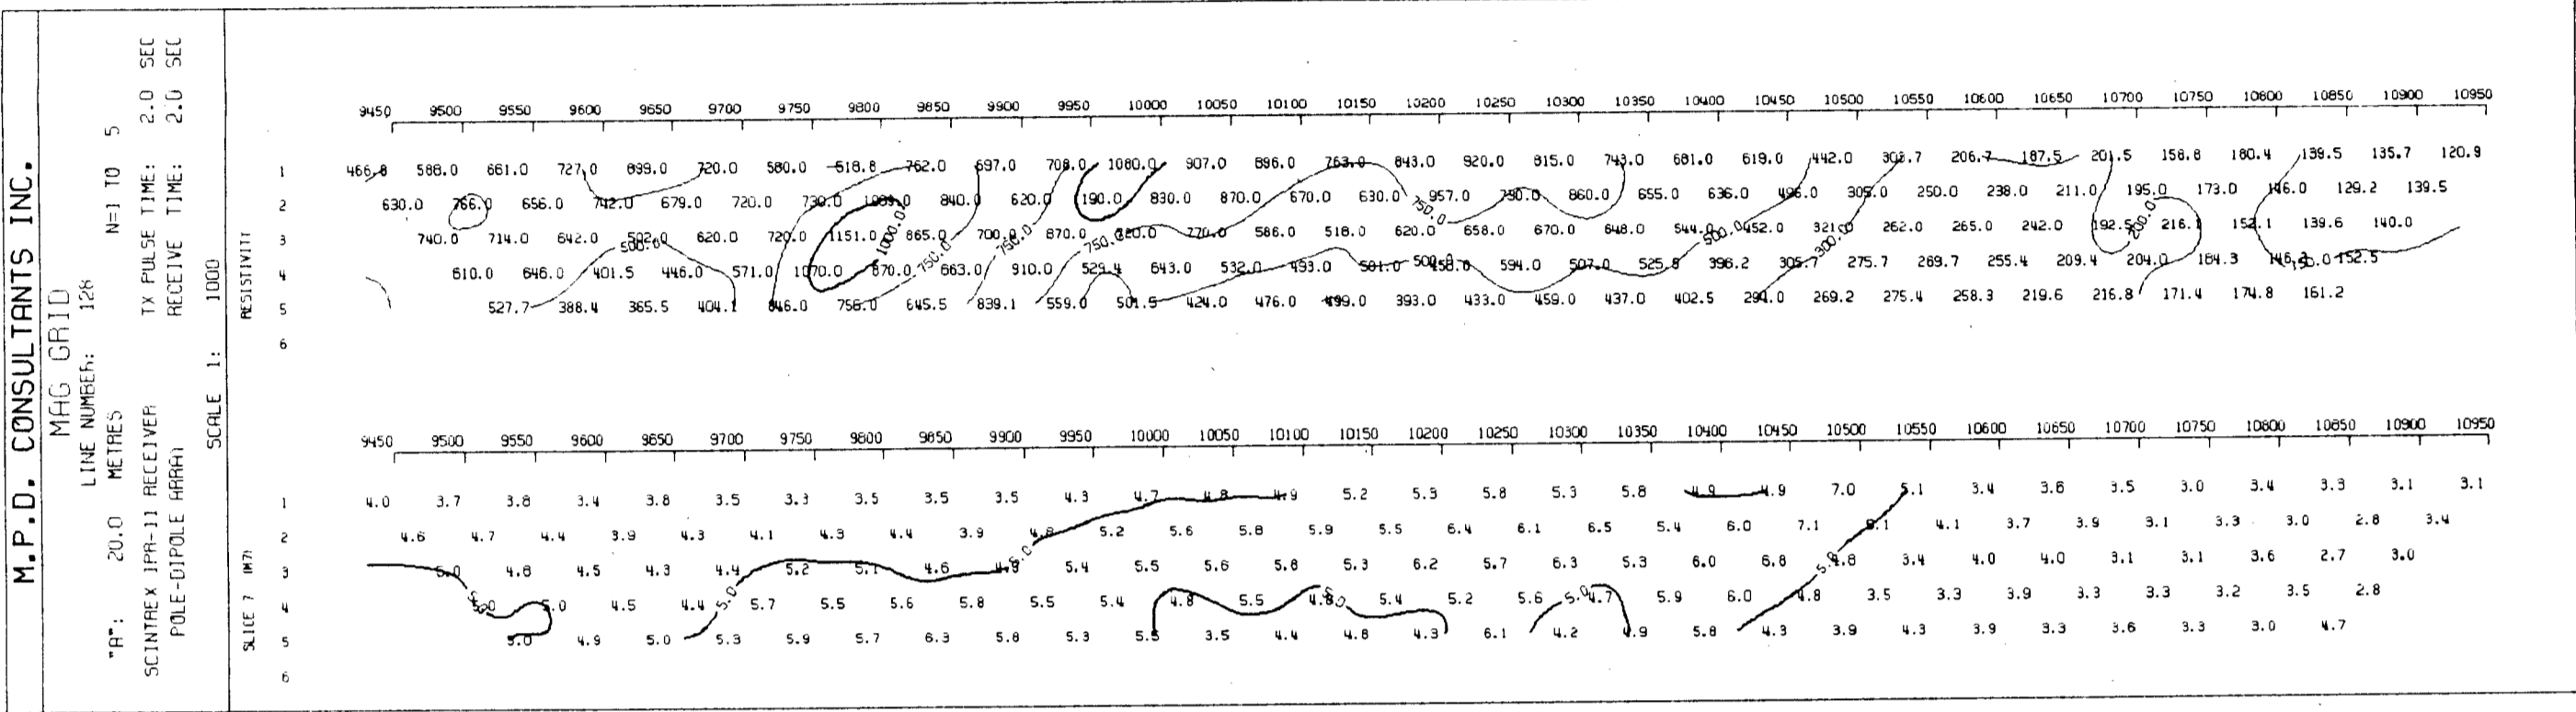 M.P.D. CONSULTANTS INC.
MAG GRID
LINE NUMBER: 128
"A": 20.0 METRES N=1 TO 5
SCINTREX IPR-11 RECEIVER TX PULSE TIME: 2.0 SEC
POLE-DIPOLE ARRAY RECEIVE TIME: 2.0 SEC
SCALE 1: 1000
RESISTIVITY
9450 9500 9550 9600 9650 9700 9750 9800 9850 9900 9950 10000 10050 10100 10150 10200 10250 10300 10350 10400 10450 10500 10550 10600 10650 10700 10750 10800 10850 10900 10950
1 466.8 588.0 661.0 727.0 699.0 720.0 580.0 518.8 762.0 697.0 708.0 1080.0 907.0 896.0 763.0 843.0 920.0 815.0 743.0 681.0 619.0 442.0 306.7 206.7 187.5 201.5 158.8 180.4 139.5 135.7 120.9
2 630.0 766.0 656.0 742.0 679.0 720.0 730.0 840.0 620.0 190.0 830.0 870.0 670.0 630.0 750.0 957.0 730.0 860.0 655.0 636.0 496.0 305.0 250.0 238.0 211.0 195.0 173.0 146.0 129.2 139.5
3 740.0 714.0 642.0 502.0 500.0 620.0 720.0 1151.0 1000.0 865.0 700.0 750.0 870.0 750.0 770.0 586.0 518.0 620.0 658.0 670.0 648.0 544.0 500.0 452.0 321.0 262.0 265.0 242.0 192.5 200.0 216.1 152.1 139.6 140.0
4 610.0 646.0 401.5 446.0 571.0 1070.0 670.0 750.0 663.0 910.0 529.4 643.0 532.0 493.0 501.0 500.0 594.0 507.0 525.8 396.2 305.7 300.0 275.7 269.7 255.4 209.4 204.0 164.3 152.5
5 527.7 388.4 365.5 404.1 846.0 756.0 645.5 839.1 559.0 501.5 424.0 476.0 499.0 393.0 433.0 459.0 437.0 402.5 294.0 269.2 275.4 258.3 219.6 216.8 171.4 174.8 161.2
6
SLICE 7 (M7)
9450 9500 9550 9600 9650 9700 9750 9800 9850 9900 9950 10000 10050 10100 10150 10200 10250 10300 10350 10400 10450 10500 10550 10600 10650 10700 10750 10800 10850 10900 10950
1 4.0 3.7 3.8 3.4 3.8 3.5 3.3 3.5 3.5 3.5 4.3 4.7 4.8 4.9 5.2 5.3 5.8 5.3 5.8 4.9 4.9 7.0 5.1 3.4 3.6 3.5 3.0 3.4 3.3 3.1 3.1
2 4.6 4.7 4.4 3.9 4.3 4.1 4.3 4.4 3.9 4.8 5.2 5.6 5.8 5.9 5.5 6.4 6.1 6.5 5.4 6.0 7.1 4.1 3.7 3.9 3.1 3.3 3.0 2.8 3.4
3 5.0 4.8 4.5 4.3 4.4 5.2 5.1 4.6 4.9 5.0 5.4 5.5 5.6 5.8 5.3 6.2 5.7 6.3 5.3 6.0 6.8 5.0 4.8 3.4 4.0 4.0 3.1 3.1 3.6 2.7 3.0
4 5.0 5.0 4.5 4.4 5.0 5.7 5.5 5.6 5.8 5.5 5.4 4.8 5.5 4.8 5.0 5.4 5.2 5.6 5.0 4.7 5.9 6.0 4.8 3.5 3.3 3.9 3.3 3.3 3.2 3.5 2.8
5 5.0 4.9 5.0 5.3 5.9 5.7 6.3 5.8 5.3 5.5 3.5 4.4 4.8 4.3 6.1 4.2 4.9 5.8 4.3 3.9 4.3 3.9 3.3 3.6 3.3 3.0 4.7
6